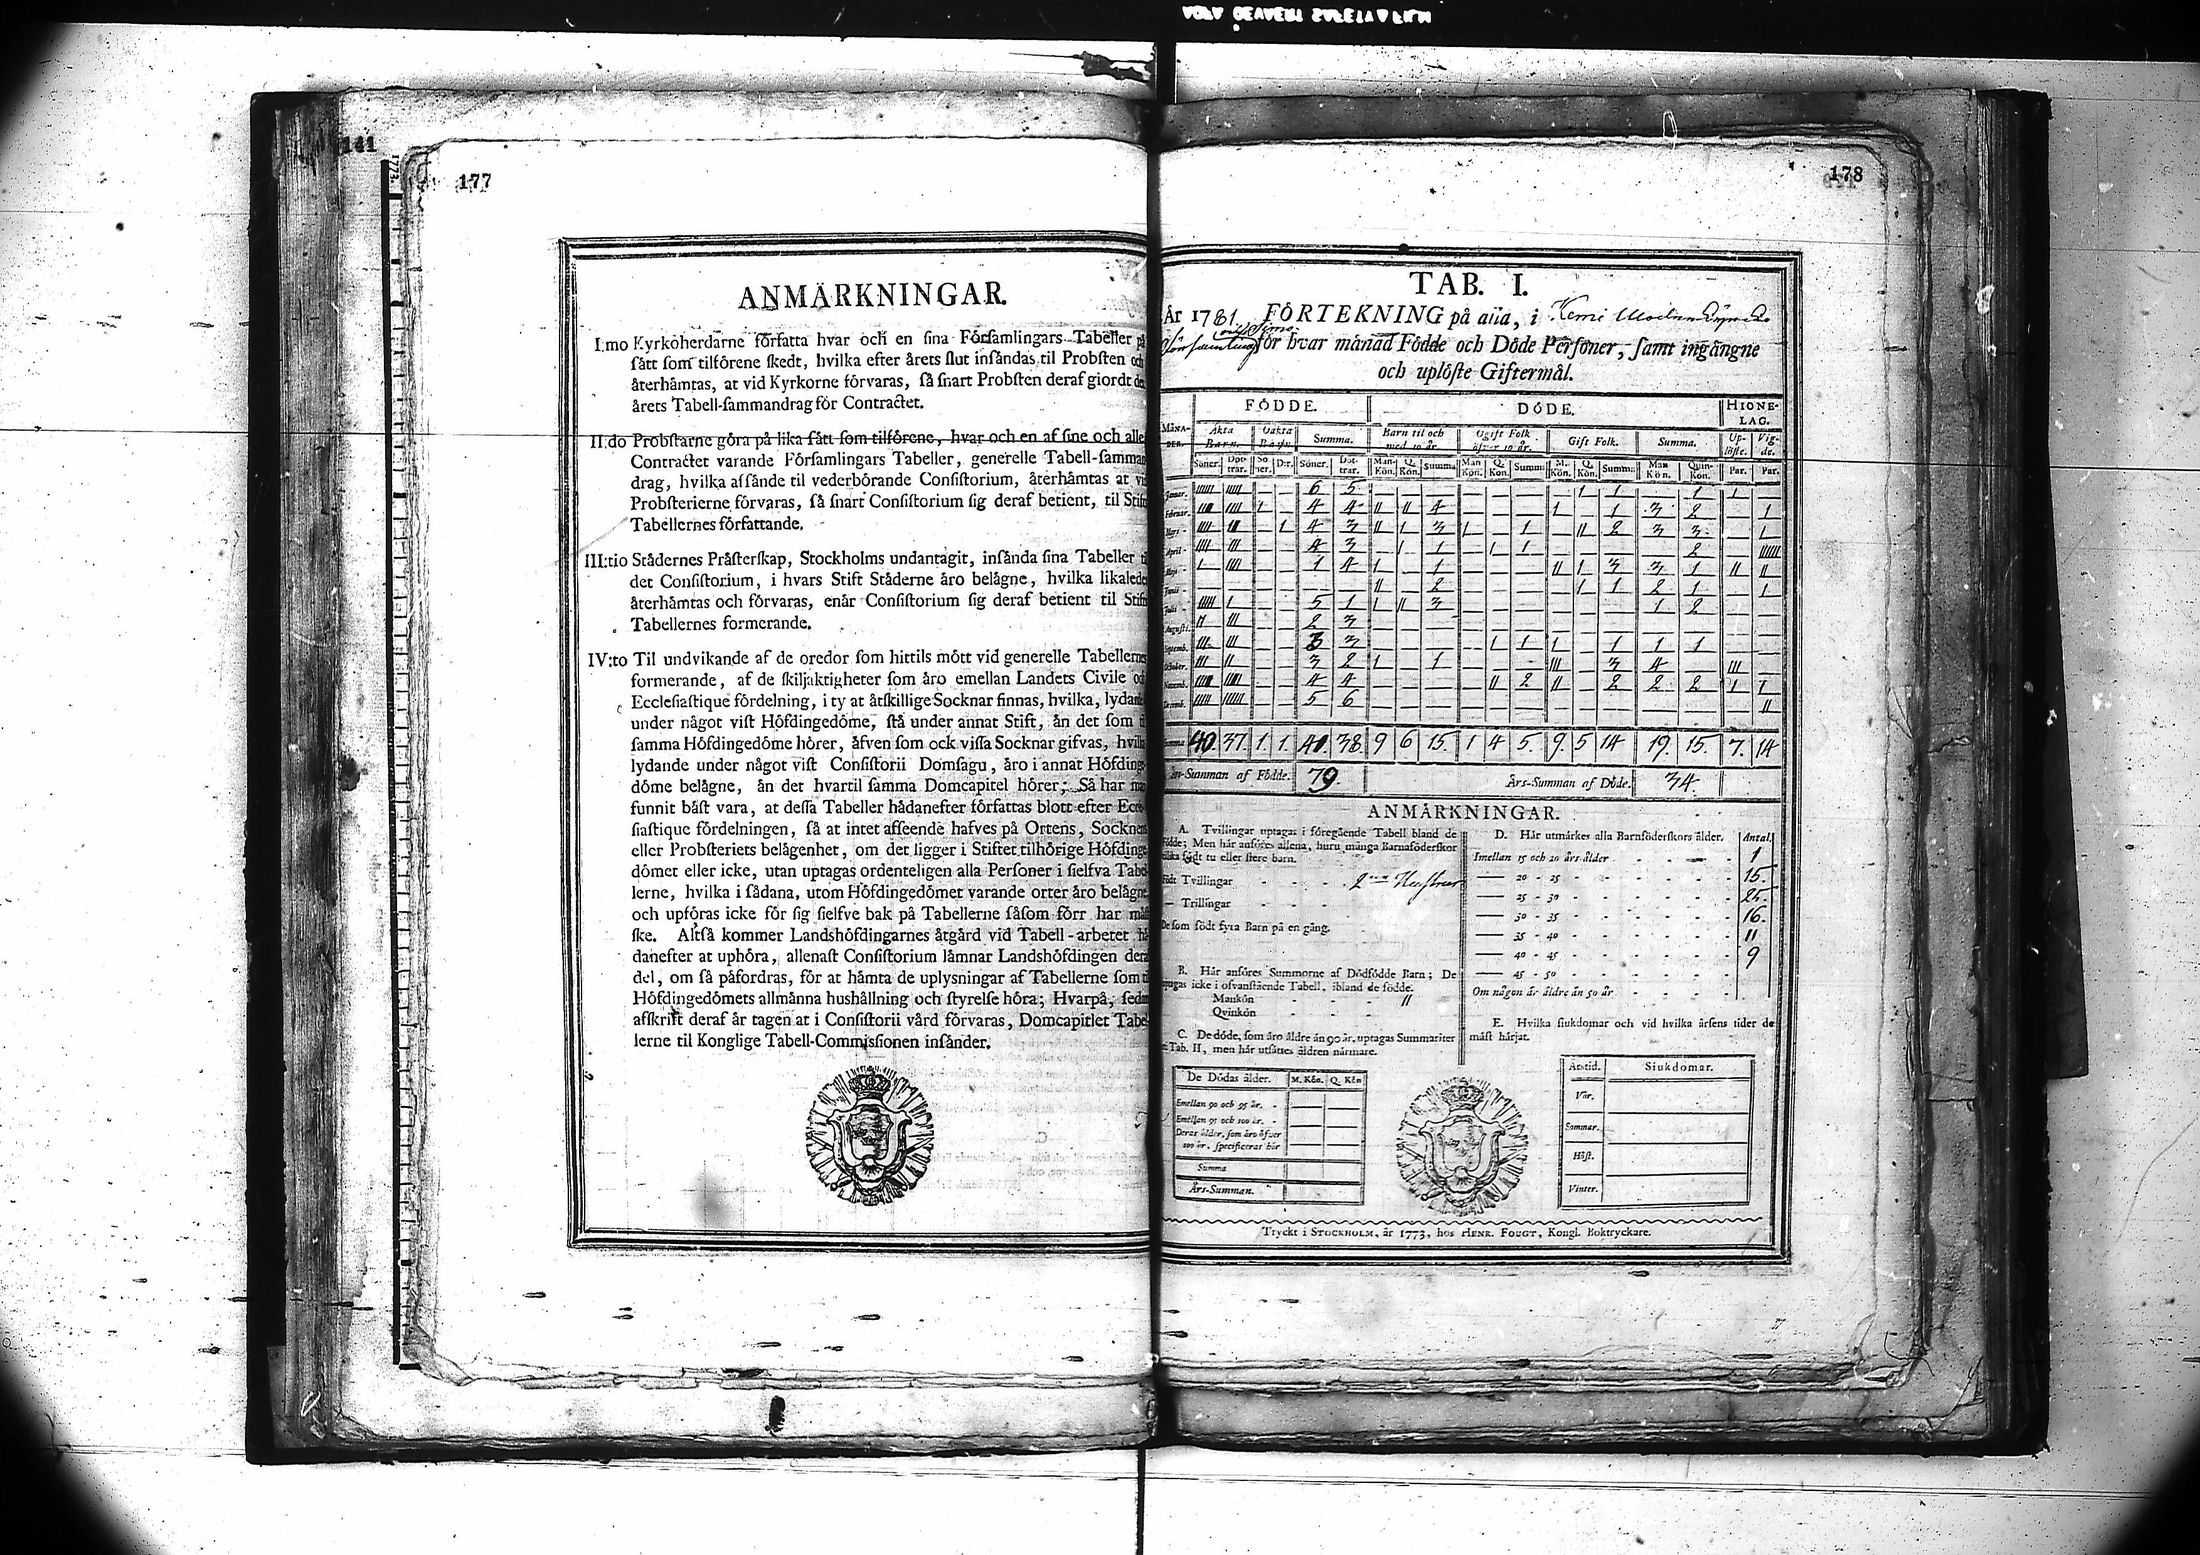 141
177
ANMÄRKNINGAR.
I:mo Kyrkoherdarne författa hvar och en sina Församlingars Tabeller på
sått som tilförene skedt, hvilka efter årets slut insåndas til Probsten och
återhämtas, at vid Kyrkorne förvaras, så snart Probsten deraf giordt det
årets Tabell-sammandrag för Contractet.
II:do Probstarne göra på lika sått som tilförene, hvar och en af sine och alle
Contractet varande Församlingars Tabeller, generelle Tabell-samman
drag, hvilka afsånde til vederbörande Consistorium, återhåmtas at
Probsterierne förvaras, så snart Consistorium sig deraf betient, til Stifts
Tabellernes författande.
III:tio Städernes Pråsterskap, Stockholms undantagit, insånda sina Tabeller
det Consistorium, i hvars Stift Ståderne åro belågne, hvilka likalede
återhåmtas och förvaras, enår Consistorium sig deraf betient til Stifts
Tabellernes formerande.
IV:to Til undvikande af de oredor som hittils mött vid generelle Tabellernes
formerande, af de skiljaktigheter som åro emellan Landets Civile och
Ecclesiastique fördelning, i ty at åtskillige Socknar finnas, hvilka, lydande
under något vist Höfdingedöme, stå under annat Stift, ån det som
samma Höfdingedöme hörer, åfven som ock vissa Socknar gifvas, hvilka
lydande under något vist Consistorii Domsagu, åro i annat Höfdinge-
döme belågne, ån det hvartil samma Domcapitel hörer; Så har man
funnit båst vara, at dessa Tabeller hådanefter författas blott efter Eccle-
siastique fördelningen, så at intet afseende hafves på Ortens, Socknens
eller Probsteriets belågenhet, om det ligger i Stiftet tilhörige Höfdinge-
dömet eller icke, utan uptagas ordenteligen alla Personer i sielfva Tabel-
lerne, hvilka i sådana, utom Höfdingedömet varande orter åro belågne
och upföras icke för sig sielfve bak på Tabellerne såsom förr har måst
ske. Altså kommer Landshöfdingarnes åtgård vid Tabell-arbetet hå-
danefter at uphöra, allenast Consistorium låmnar Landshöfdingen dera
del, om så påfordras, för at håmta de uplysningar af Tabellerne som til
Höfdingedömets allmånna hushållning och styrelse höra; Hvarpå, sedan
afskrift deraf år tagen at i Consistorii vård förvaras, Domcapitlet Tabel-
lerne til Konglige Tabell-Commissionen insånder.
178
TAB. I.
År 1781. FÖRTEKNING på alla, i Kemi
och Simo
Församling för hvar månad Födde och Döde Personer, samt ingångne
och uplöste Giftermål.
FÖDDE. DÖDE. HIONE-LAG.
MÅNA-DER. Äkta Barn. Oäkta Barn. Summa. Barn til och med 10 år. Ogift Folk öfver 10 år. Gift Folk. Summa. Up-löste. Vig-de.
Söner. Döt-trar. Sö ner. D:r. Söner. Döt-trar. Man-Kön. Q. Kön. Summa Man Kön. Q. Kön. Summ. M. Kön. Q. Kön. Summa Man Kön. Quin-Kön. Par. Par.
Januar. 6 5 — — — — — — — 1 1 — 1 1 —
Februar. 4 4 II II 4 — — — 1 — 1 3 2 — 1
Mars 4 3 II 1 3 1 — 1 — II 2 3 3 — 1
April 4 3 — 1 1 — 1 1 — — — — 2 — IIIII
Maji 1 4 1 — 1 — — — II 1 3 3 1 II II
Junii — — II — 2 — — — — 1 1 2 1 — 1
Julii 5 1 1 II 3 — — — — — — 1 2
Augusti 2 3
Septemb. 3 3 — — — — 1 1 1 — 1 1 1
October. 3 2 1 — 1 — — — III — 3 4 — III —
Novemb. 4 4 — — — — II 2 II — 2 2 2 1 1
Decemb. 5 6 — II
Summa 40. 37. 1. 1. 41. 38. 9 6 15. 1 4 5. 9. 5 14 19. 15. 7. 14
Års-Summan af Födde. 79. Års-Summan af Döde. 34.
ANMÄRKNINGAR.
A. Tvillingar uptagas i föregående Tabell bland de
Födde; Men hår anföres allena, huru många Barnaföderskor
hvilka födt tu eller flere barn.
Födt Tvillingar - - - - 2 Hustrur
— Trillingar - - - -
De som födt fyra Barn på en gång.
B. Hår anföres Summorne af Dödfödde Barn; De
uptagas icke i ofvanstående Tabell, ibland de födde.
Mankön - - - II
Qvinkön - - -
C. De döde, som åro åldre ån 90 år, uptagas Summariter
i Tab. II, men hår utsåttes åldren nårmare.
De Dödas ålder. M. Kön. Q. Kön
Emellan 90 och 95 år. -
Emellan 95 och 100 år. -
Deras ålder, som åro öfver
100 år, specificerat hår
Summa
Års-Summan.
D. Hår utmårkes alla Barnföderskors ålder. Antal.
Imellan 15 och 20 års ålder - - - 1
— 20 - 25 - - - 15.
— 25 - 30 - - - 25.
— 30 - 35 - - - 16.
— 35 - 40 - - - 11
— 40 - 45 - - - 9
— 45 - 50 - - -
Om någon år åldre ån 50 år - - -
E. Hvilka siukdomar och vid hvilka årsens tider de
måst hårjat.
Årstid. Siukdomar.
Vår.
Sommar.
Höst.
Vinter.
Tryckt i STOCKHOLM, år 1773, hos HENR. FOUGT, Kongl. Boktryckare.